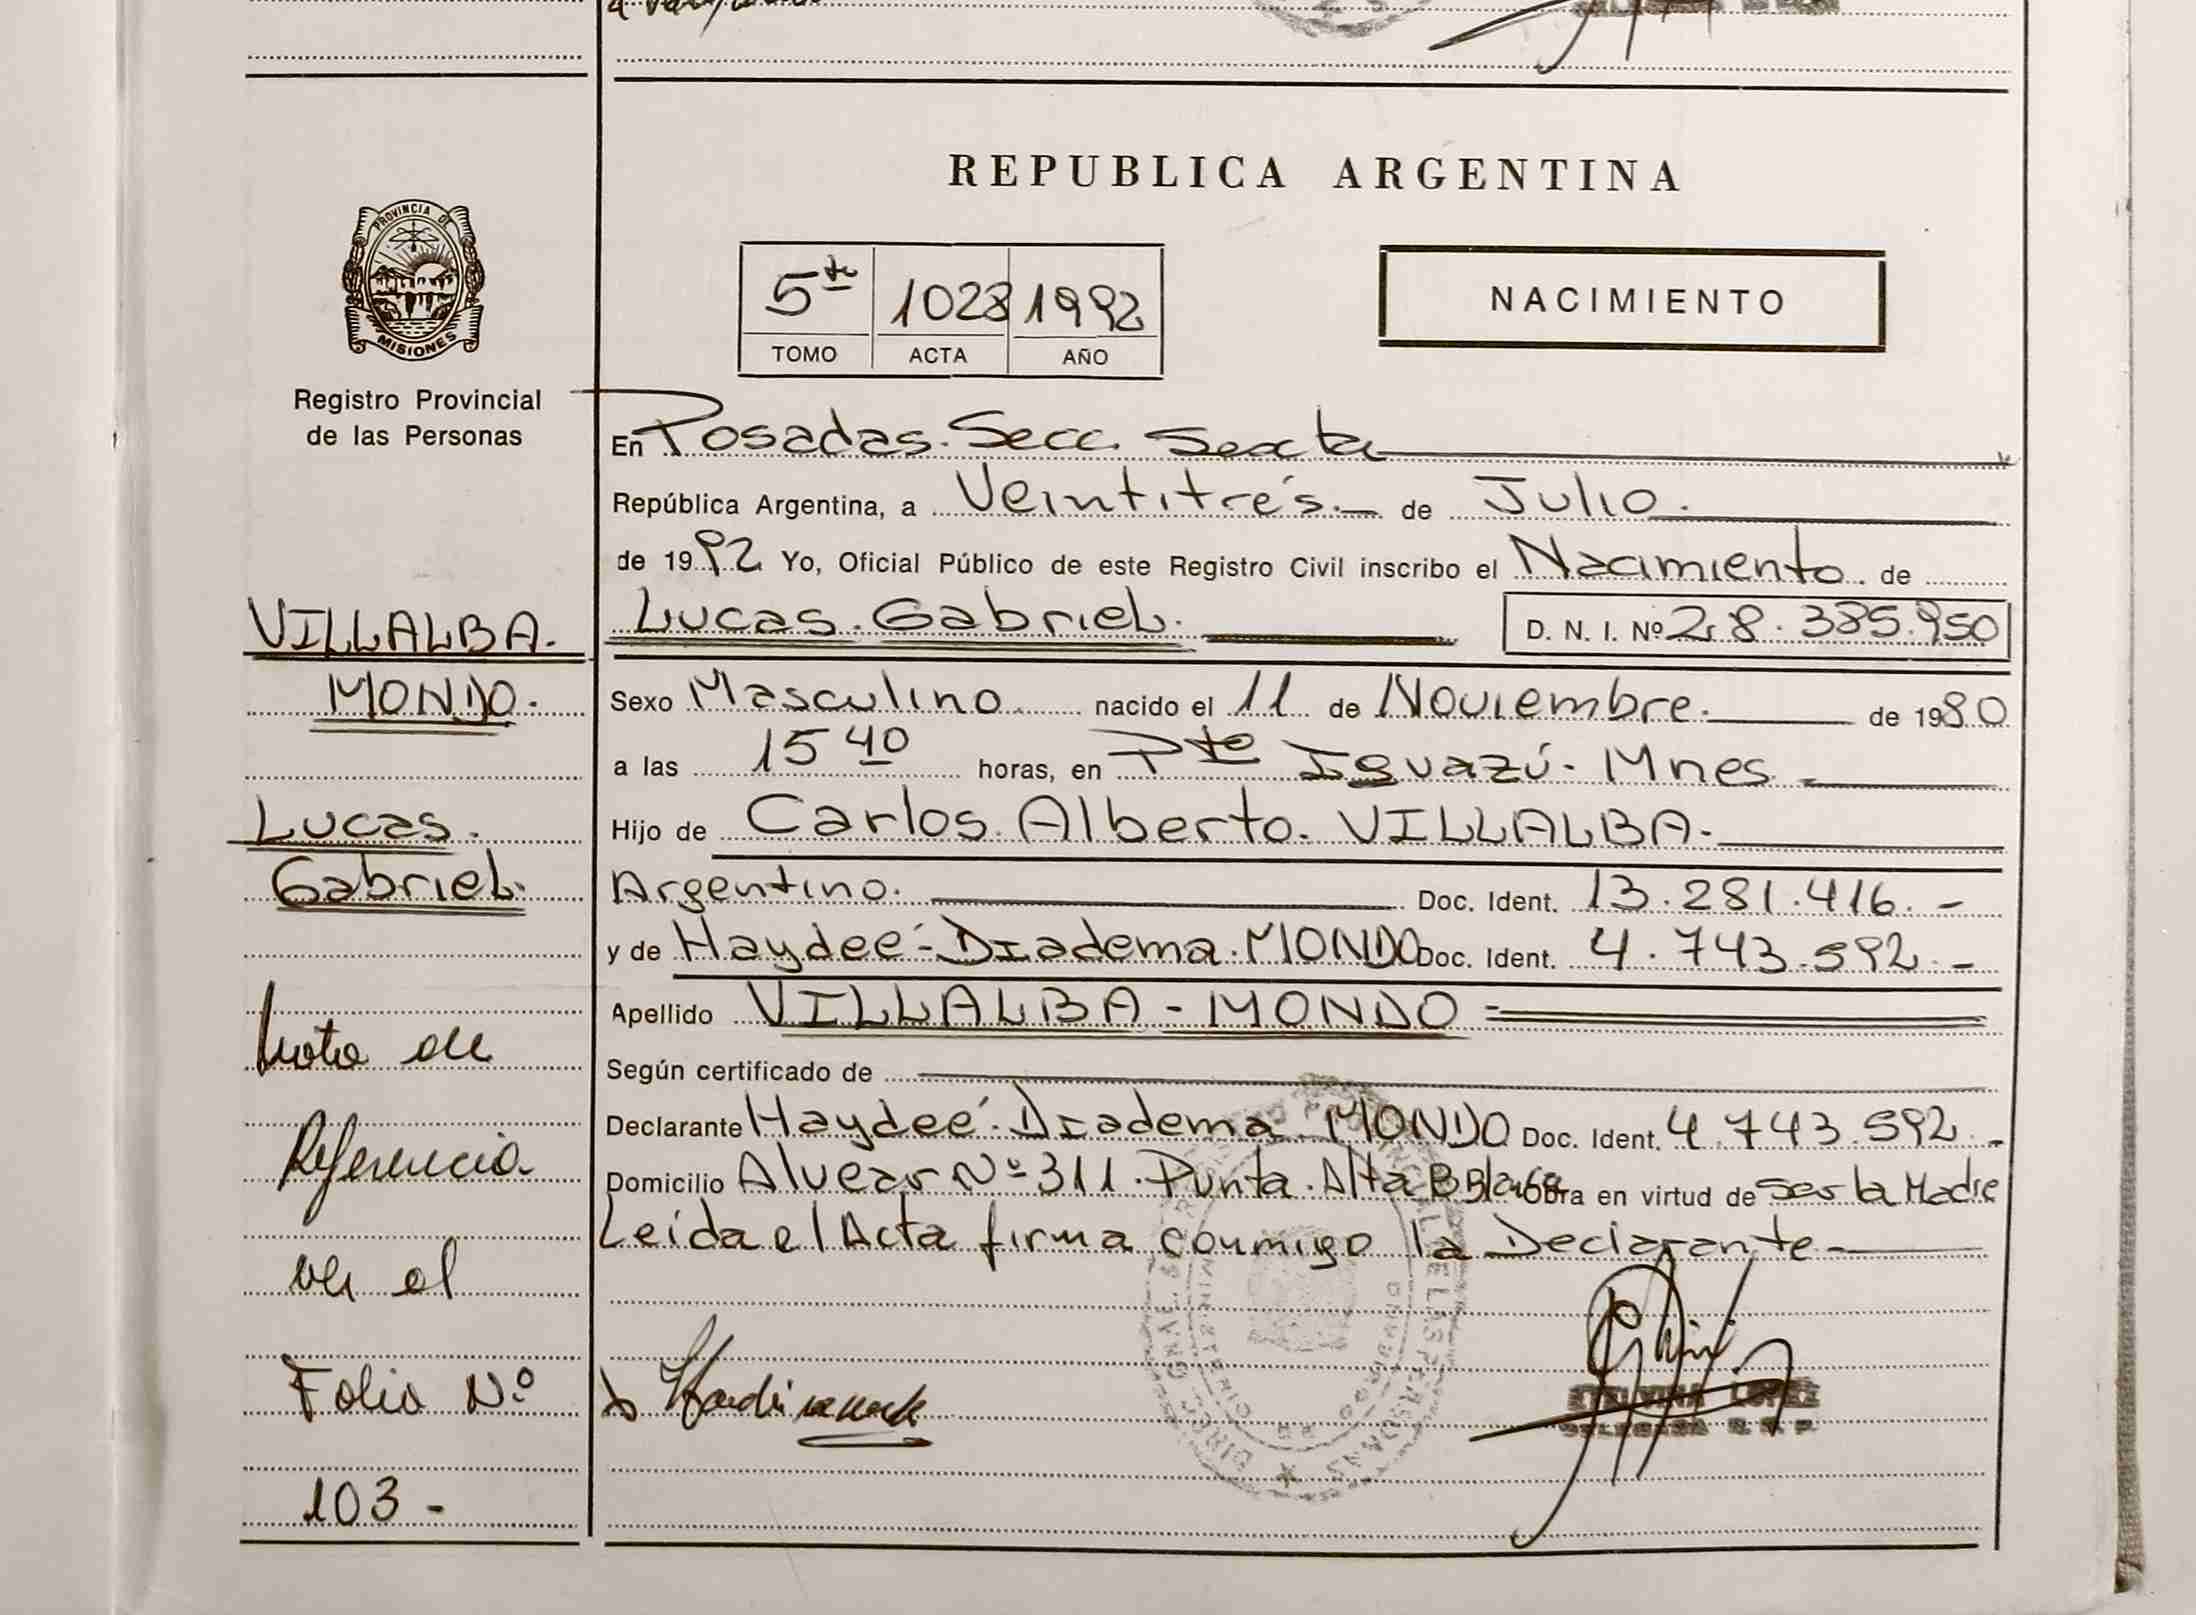 REPUBLICA ARGENTINA
PROVINCIA DE
MISIONES
Registro Provincial
de las Personas
5ta 1028 1992
TOMO ACTA AÑO
NACIMIENTO
En Posadas. Secc. Sexta
República Argentina, a Veintitrés de Julio.
de 1992 Yo, Oficial Público de este Registro Civil inscribo el Nacimiento de
Lucas. Gabriel. D. N. I. Nº 28.385.950
Sexo Masculino nacido el 11 de Noviembre. de 1980
a las 15 40 horas, en Pto Iguazú - Mnes
Hijo de Carlos. Alberto. VILLALBA.
Argentino. Doc. Ident. 13.281.416. -
y de Haydeé - Diadema. MONDO Doc. Ident. 4.743.592. -
Apellido VILLALBA - MONDO =
Según certificado de
Declarante Haydeé. Diadema. MONDO Doc. Ident. 4.743.592. -
Domicilio Alvear Nº 311. Punta. Alta B Blanca Obra en virtud de ser la Madre
Leida el Acta firma conmigo la Declarante
ETELVINA LOPEZ
DELEGADA R. P. P.
VILLALBA.
MONDO.
Lucas.
Gabriel.
Nota de
Referencia
ver el
Folio Nº
103 -